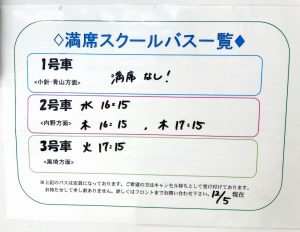 ◇満席スクールバス一覧◆
1号車
満席 なし!
<小針・青山方面>
2号車 水 16:15
<内野方面> 木 16:15 , 木 17:15
3号車 火 17:15
<黒埼方面>
※上記のバスは定員になっております。ご希望の方はキャンセル待ちとして受け付けております。
お待たせして申し訳ありません。詳しくはフロントまでお問い合わせ下さい。 12/5 現在